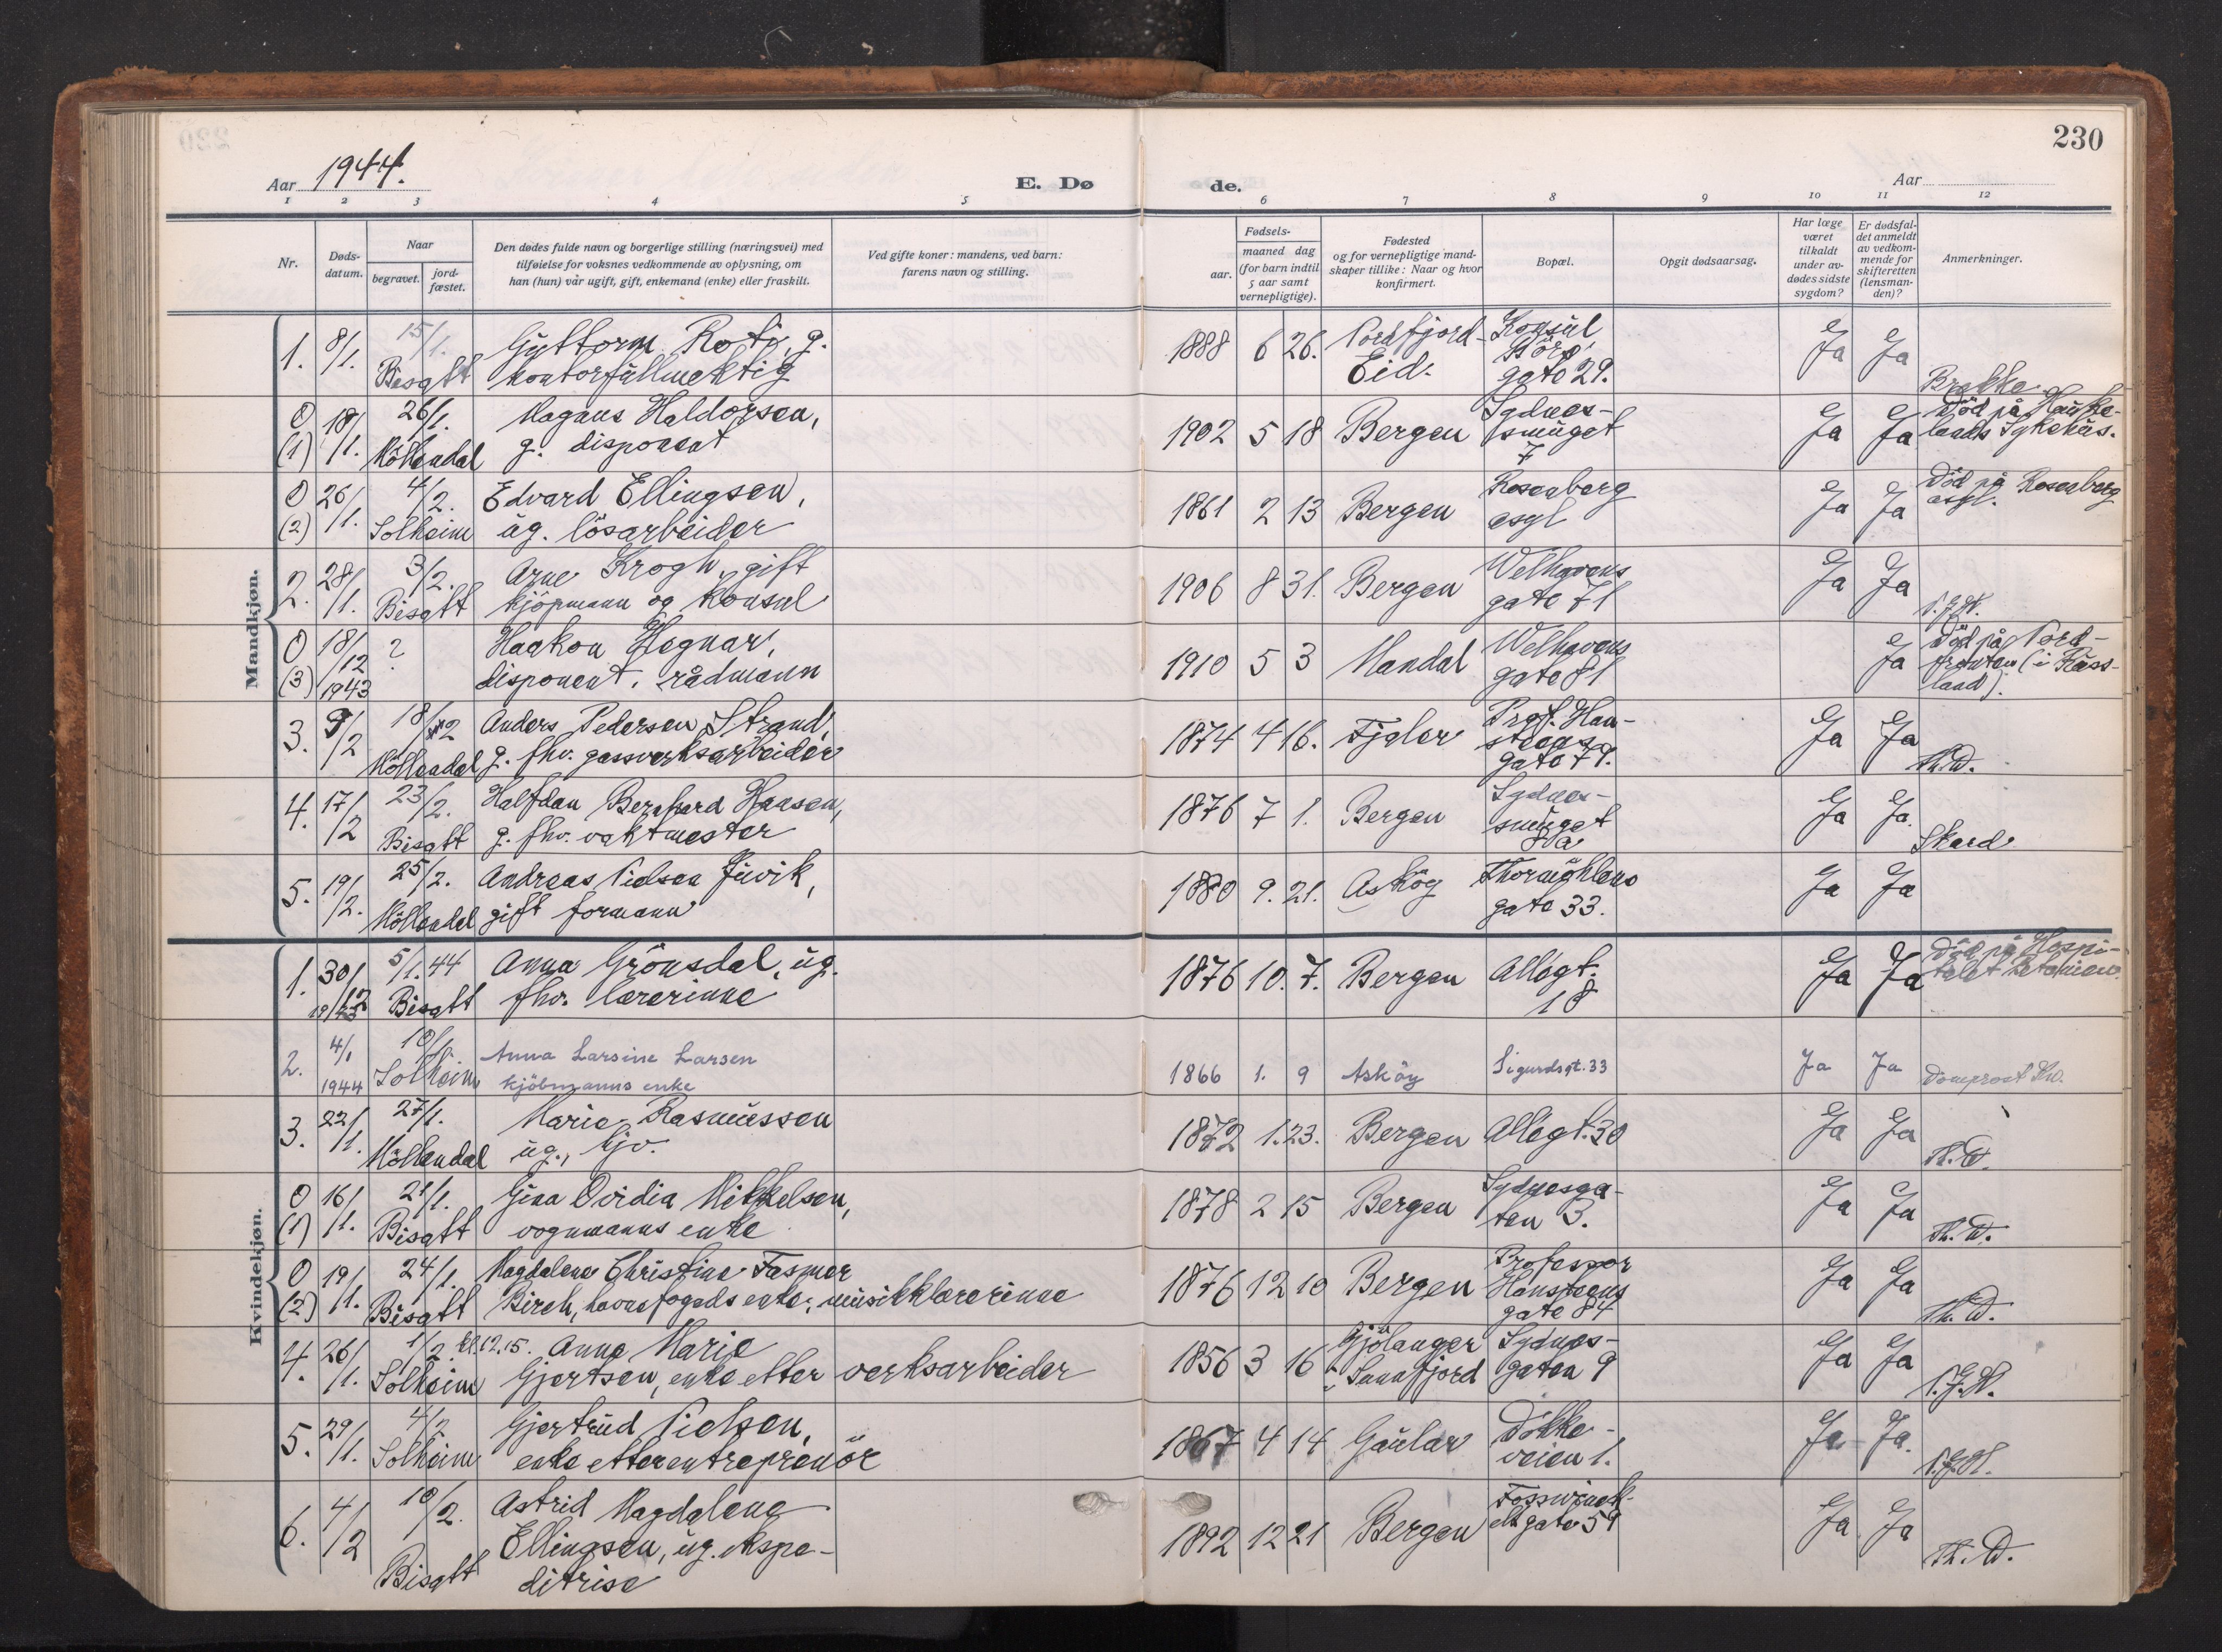 230
Aar 1944.
E. Dø de.
Aar
1 2 3 4 5 6 7 8 9 10 11 12
Nr.
Døds-
datum.
Naar
begravet.
jord-
fæstet.
Den dødes fulde navn og borgerlige stilling (næringsvei) med
tilføielse for voksnes vedkommende av oplysning, om
han (hun) var ugift, gift, enkemand (enke) eller fraskilt.
Ved gifte koner: mandens, ved barn:
farens navn og stilling.
Fødsels-
aar.
maaned dag
(for barn indtil
5 aar samt
vernepligtige).
Fødested
og for vernepligtige mand-
skaper tillike: Naar og hvor
konfirmert.
Bopæl.
Opgit dødsaarsag.
Har læge
været
tilkaldt
under av-
dødes sidste
sygdom?
Er dødsfal-
det anmeldt
av vedkom-
mende for
skifteretten
(lensman-
den)?
Anmerkninger.
Mandkjøn.
1. 8/1. 15/1. Bisatt
Guttorm Roti, g.
kontorfullmektig
1888 6 26. Nordfjord-
Eid.
Konsul
Börs
gate 29.
Ja Ja
Brekke
0 (1) 18/1. 26/1. Möllendal
Magnus Haldorsen,
g. disponent
1902 5 18 Bergen
Sydnes-
smuget
7
Ja Ja
Död på Hauke-
lands Sykehus.
0 (2) 26/1. 4/2. Solheim
Edvard Ellingsen,
ug. lösarbeider
1861 2 13 Bergen
Rosenberg
asyl
Ja Ja
Död på Rosenberg
asyl.
2. 28/1. 3/2. Bisatt
Arne Krogh, gift
kjöpmann og konsul
1906 8 31. Bergen
Welhavens
gate 71
Ja Ja
0 (3) 18/12 1943 ?
Haakon Hegnar,
disponent, rådmann
1910 5 3 Mandal
Welhavens
gate 81
Ja
Död på Nord-
fronten (i Russ-
land).
3. 9/2 18/2 Möllendal
Anders Pedersen Strand,
g. fhv. gassverksarbeider
1874 4 16. Fjaler
Prof. Han-
steens
gate 79.
Ja Ja
Th. W.
4. 17/2 23/2. Bisatt
Halfdan Bernhard Hansen,
g. fhv. vaktmester
1876 7 1. Bergen
Sydnes-
smuget
8a
Ja Ja.
Skard
5. 19/2. 25/2. Möllendal
Andreas Nielsen Juvik,
gift formann
1880 9. 21. Asköy
Thormöhlens
gate 33.
Ja Ja
Kvindekjøn.
1. 30/12 1943 5/1.44 Bisatt
Anna Grönsdal, ug.
fhv. lærerinne
1876 10. 7. Bergen
Allégt.
18
Ja Ja
Död på Hospi-
talet Betanien.
2. 4/1 1944 10/1 Solheim
Anna Larsine Larsen
kjöbmanns enke
1866 1. 9 Asköy
Sigurdsgt. 33
Ja Ja
Domprost
3. 22/1. 27/1. Möllendal
Marie Rasmussen
ug., hjv.
1872 1. 23. Bergen
Allégt. 30
Ja Ja
Th. W.
0 (1) 16/1. 21/1. Bisatt
Gina Ovidia Mikkelsen,
vognmanns enke
1878 2 15 Bergen
Sydnesga-
ten 3.
Ja Ja
Th. W.
0 (2) 19/1. 24/1. Bisatt
Magdalene Christine Fasmer
Birch, havnefogeds enke, musikklærerinne
1876 12 10 Bergen
Professor
Hansteens
gate 84
Ja Ja
Th. W.
4. 26/1. 1/2. kl.12.15. Solheim
Anna Marie
Gjertsen, enke etter verksarbeider
1856 3 16 Gjölanger
i Sunnfjord
Sydnes-
gaten 9
Ja Ja
5. 29/1. 4/2 Solheim
Gjertrud Nielsen,
enke etter entreprenör
1867 4 14 Gaular
Dokke-
veien 1.
Ja Ja.
6. 4/2 10/2. Bisatt
Astrid Magdalene
Ellingsen, ug. ekspe-
ditrise
1892 12 21 Bergen
Fosswinck-
els gate 59
Ja Ja
Th. W.